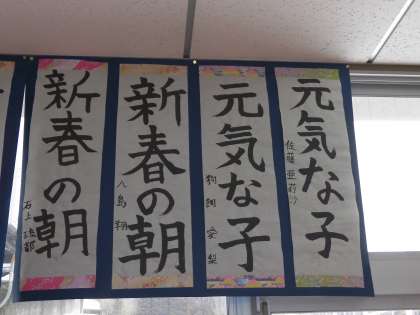 元気な子
佐藤 亜莉沙
元気な子
安梨
新春の朝
八島 翔
新春の朝
石上